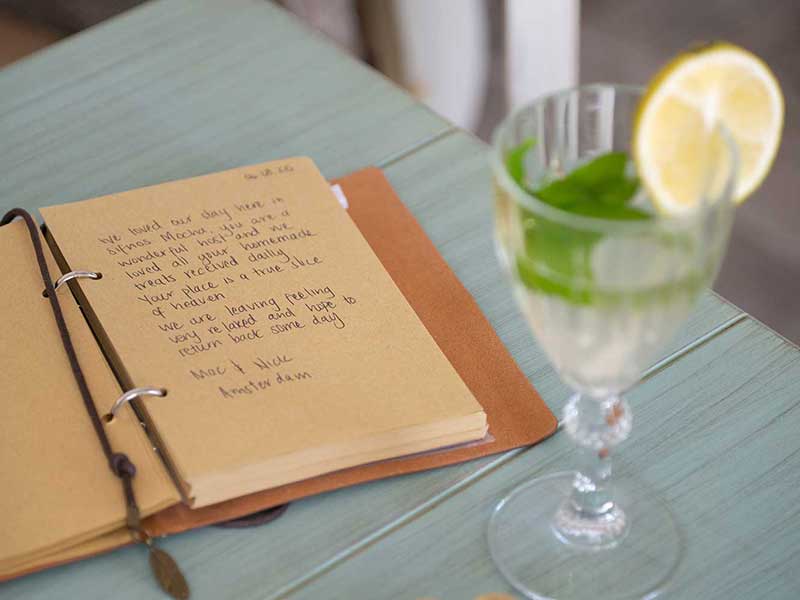 We loved our day here in
Sifnos Mocha, you are a
wonderful host and we
loved all your homemade
treats received daily
Your place is a true slice
of heaven
we are leaving feeling
very relaxed and hope to
return back some day
Mac & Nick
Amsterdam